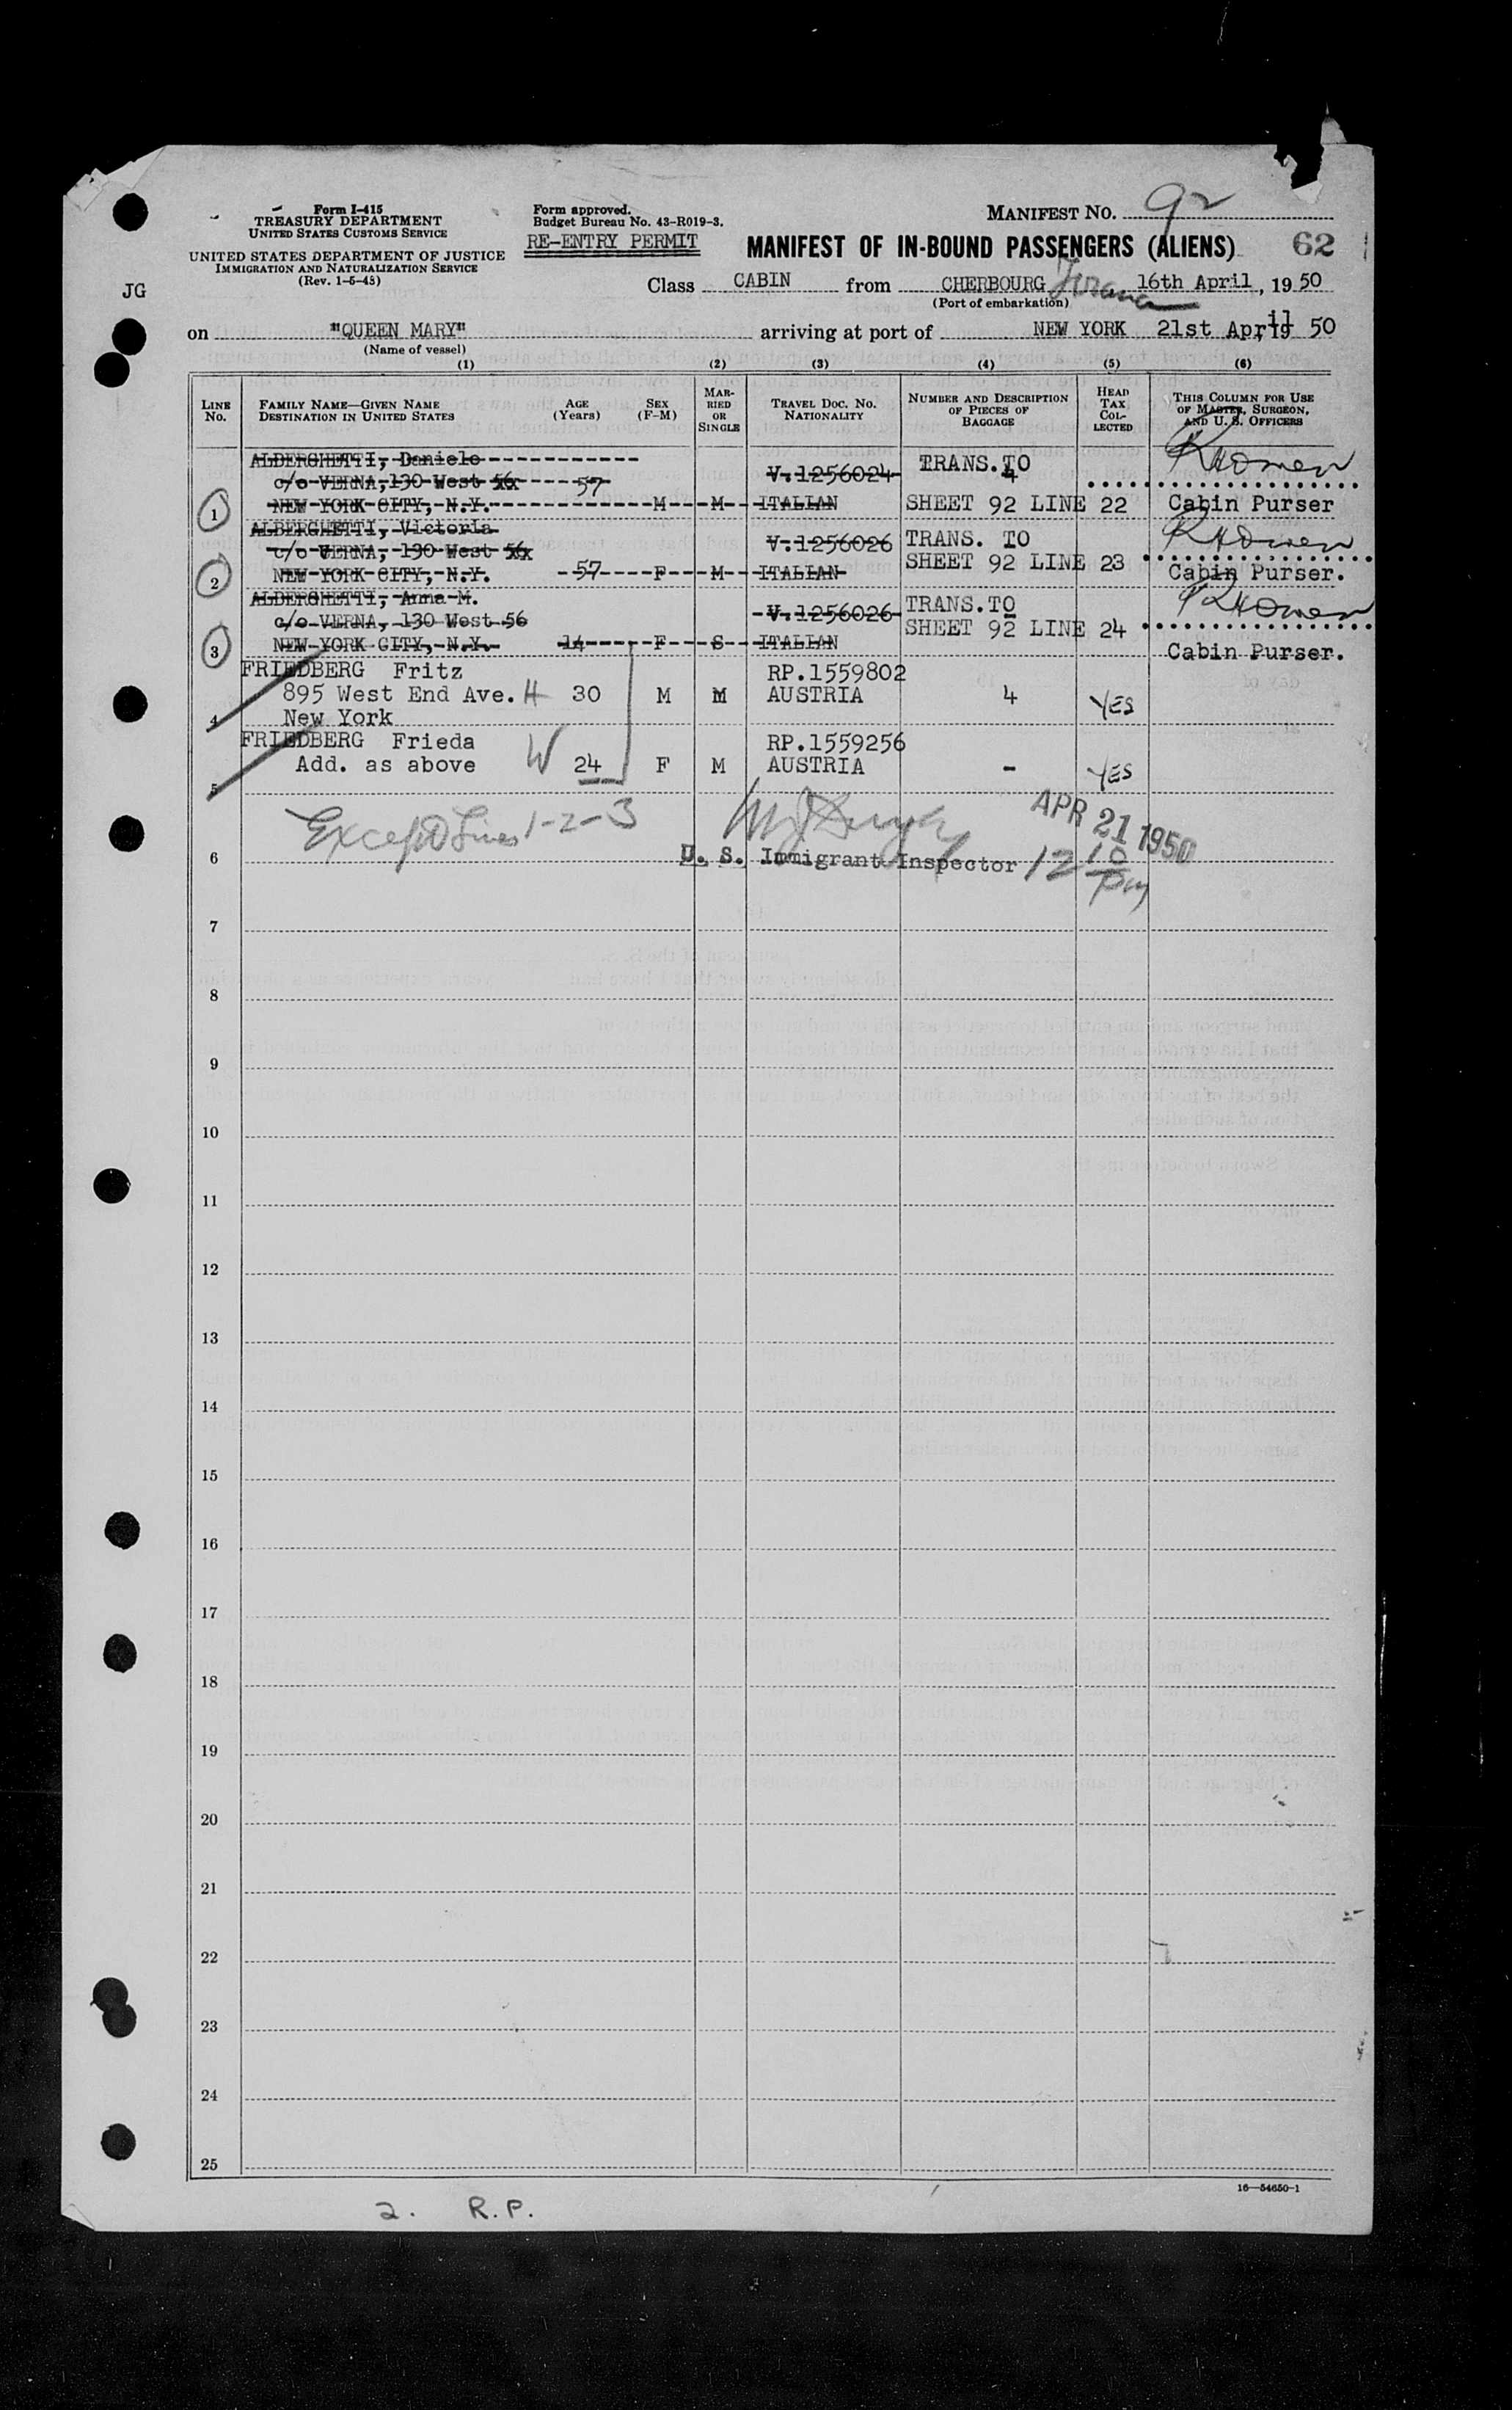 Form I-415
TREASURY DEPARTMENT
UNITED STATES CUSTOMS SERVICE
UNITED STATES DEPARTMENT OF JUSTICE
IMMIGRATION AND NATURALIZATION SERVICE
(Rev. 1-5-45)
Form approved.
Budget Bureau No. 43-R019-3.
RE-ENTRY PERMIT
MANIFEST NO. 92
MANIFEST OF IN-BOUND PASSENGERS (ALIENS) 62
JG
Class CABIN from CHERBOURG 16th April, 19 50
(Port of embarkation)
on "QUEEN MARY" arriving at port of NEW YORK 21st April, 19 50
(Name of vessel)
(1) (2) (3) (4) (5) (6)
LINE NO.
FAMILY NAME—GIVEN NAME
DESTINATION IN UNITED STATES
AGE (Years)
SEX (F-M)
MARRIED OR SINGLE
TRAVEL DOC. NO.
NATIONALITY
NUMBER AND DESCRIPTION OF PIECES OF BAGGAGE
HEAD TAX COLLECTED
THIS COLUMN FOR USE OF MASTER, SURGEON, AND U. S. OFFICERS
ALDERGHETTI, Daniele
c/o VERNA, 130 West 56 57 V.1256024 TRANS. TO 4
1 NEW YORK CITY, N.Y. M M ITALIAN SHEET 92 LINE 22 Cabin Purser
ALBERGHETTI, Victoria
c/o VERNA, 130 West 56 V.1256026 TRANS. TO
2 NEW YORK CITY, N.Y. 57 F M ITALIAN SHEET 92 LINE 23 Cabin Purser.
ALDERGHETTI, Anna M.
c/o VERNA, 130 West 56 V.1256026 TRANS. TO
3 NEW YORK CITY, N.Y. 14 F S ITALIAN SHEET 92 LINE 24 Cabin Purser.
FRIEDBERG Fritz RP.1559802
895 West End Ave. H 30 M M AUSTRIA 4 YES
4 New York
FRIEDBERG Frieda RP.1559256
Add. as above W 24 F M AUSTRIA - YES
5
Except Lines 1-2-3
APR 21 1950
6 U. S. Immigrant Inspector 12 10 pm
7
8
9
10
11
12
13
14
15
16
17
18
19
20
21
22
23
24
25
16—54650-1
2. R.P.